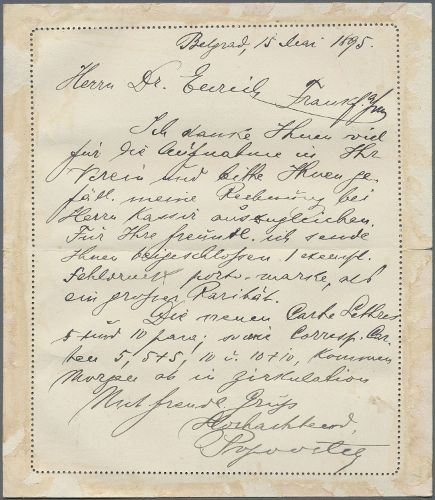 Belgrad, 15 Mai 1895.
Herrn Dr.
Frankf a/m
Ich danke Ihnen viel
für die Aufnahme in Ihr
Verein und bitte Ihnen ge-
fäll. meine Rechnung bei
Herrn Kassir auszugleichen.
Für Ihre freundl. ich sende
Ihnen beigeschlossen 1 exempl.
porto-marke, als
ein grosser Rarität.
Die neuen Carte Lettres
5 und 10 para; sowie Corresp. Car-
ten 5, 5+5, 10 u. 10+10, kommen
Morgen ab in Zirkulation
Mit freundl Grüss
Hochachtend,